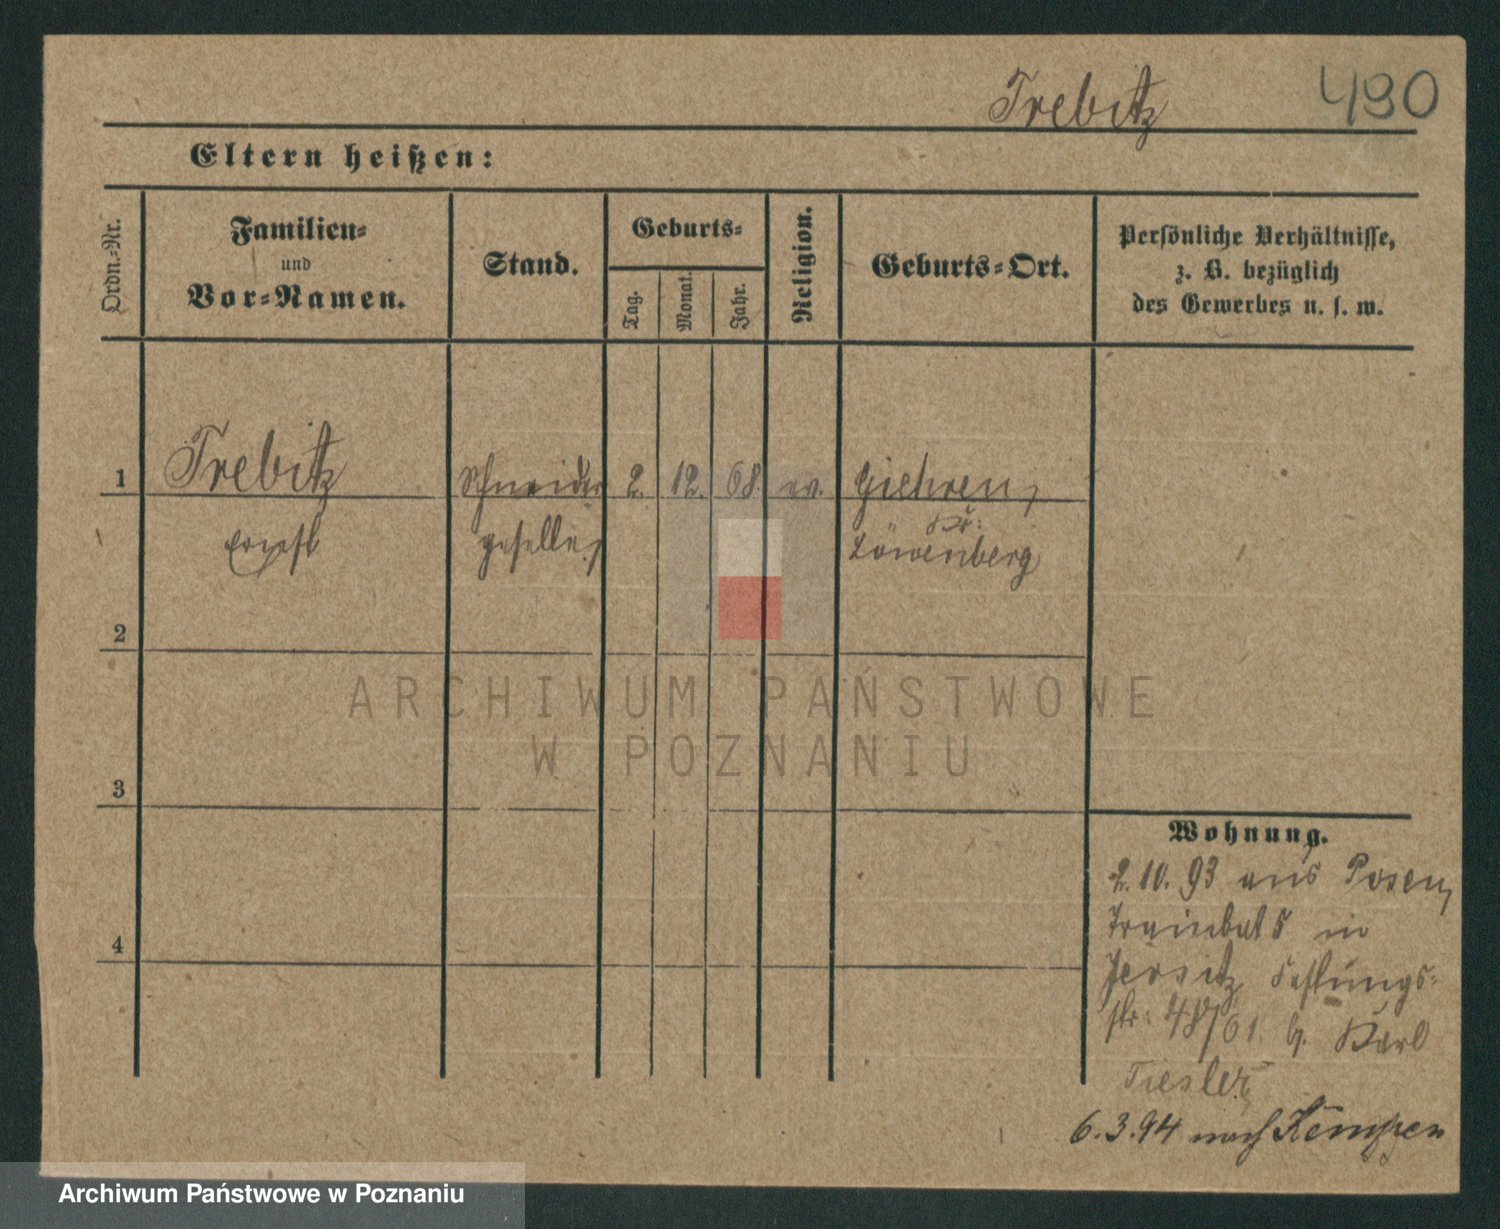 Trebitz
490
Eltern heißen:
Ordn.-Nr.
Familien-
und
Vor-Namen.
Stand.
Geburts-
Tag.
Monat.
Jahr.
Religion.
Geburts-Ort.
Persönliche Verhältnisse,
z. B. bezüglich
des Gewerbes u. s. w.
1
Trebitz
Schneider-
2.
12.
68.
ev.
Giehren,
Ernst
geselle,
Kr:
Löwenberg
2
3
4
ARCHIWUM PAŃSTWOWE
W POZNANIU
Wohnung.
2.10.93 aus Posen,
Trainbat 5 in
Jersitz Festungs-
str: 48/61. b. Karl
Tiesler
6.3.94 nach Kempen
Archiwum Państwowe w Poznaniu